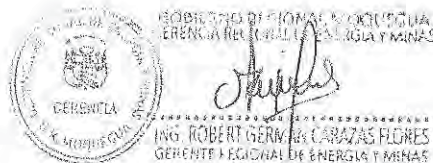 GOBIERNO REGIONAL MOQUEGUA
GERENCIA REGIONAL DE ENERGIA Y MINAS
GERENCIA
MOQUEGUA
ING. ROBERT GERMAN CARAZAS FLORES
GERENTE REGIONAL DE ENERGIA Y MINAS